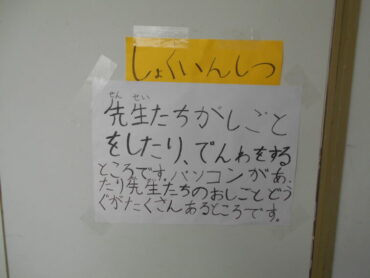 しょくいんしつ
せんせい
先生たちがしごと
をしたり、でんわをする
ところです。パソコンがあっ
たり先生たちのおしごとどう
ぐがたくさんあるところです。